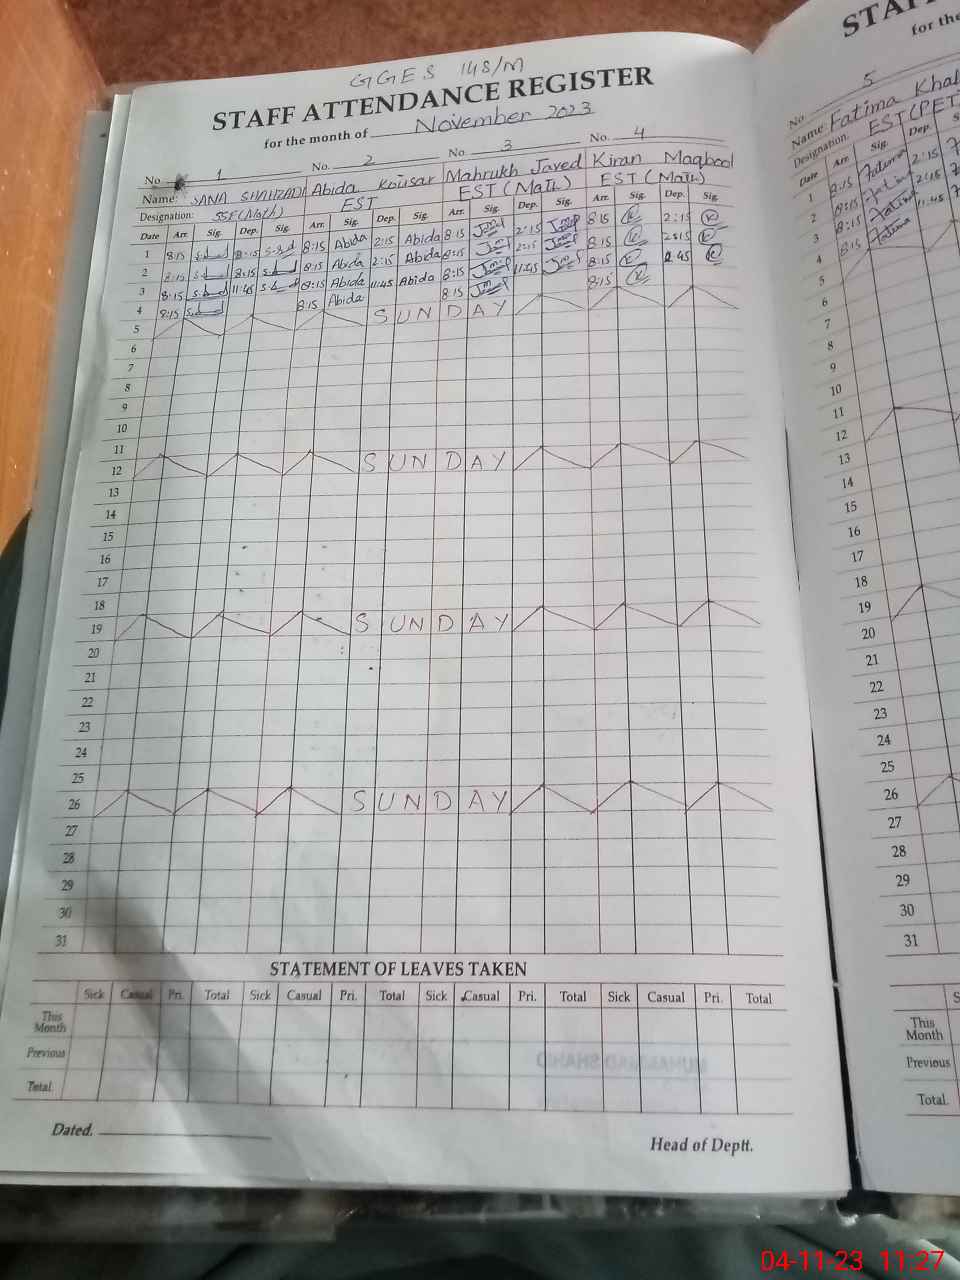 GGES 148/M
STAFF ATTENDANCE REGISTER
for the month of November 2023
No. 1 No. 2 No. 3 No. 4
Name: SANA SHAHZADI Abida Kousar Mahrukh Javed Kiran Maqbool
Designation: SSE(Math) EST EST (Math) EST (Math)
Date Arr. Sig. Dep. Sig. Arr. Sig. Dep. Sig. Arr. Sig. Dep. Sig. Arr. Sig. Dep. Sig.
1 8:15 8:15 Abida 2:15 Abida 8:15 2:15 8:15 2:15
2 8:15 8:15 8:15 Abida 2:15 Abida 8:15 2:15 8:15
3 8:15 11:45 8:15 Abida 11:45 Abida 8:15 11:45 8:15
4 8:15 8:15 Abida 8:15 8:15
5 SUNDAY
6
7
8
9
10
11
12 SUNDAY
13
14
15
16
17
18
19 SUNDAY
20
21
22
23
24
25
26 SUNDAY
27
28
29
30
31
STATEMENT OF LEAVES TAKEN
Sick Casual Pri. Total Sick Casual Pri. Total Sick Casual Pri. Total Sick Casual Pri. Total
This Month
Previous
Total
Dated.
Head of Deptt.
for the
No. 5
Name: Fatima
Designation: EST(PET)
Date Arr. Sig. Dep.
1 8:15 Fatima 2:15
2 8:15 Fatima 2:15
3 8:15 Fatima 11:45
4 8:15 Fatima
5
6
7
8
9
10
11
12
13
14
15
16
17
18
19
20
21
22
23
24
25
26
27
28
29
30
31
This Month
Previous
Total.
04-11-23 11:27